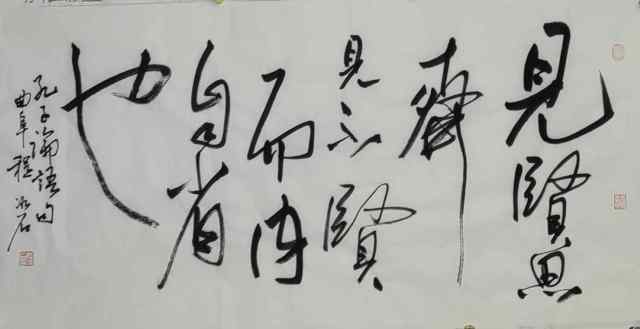 見賢思
齊
見不賢
而内
自省
也
孔子論語句
曲阜程冰石